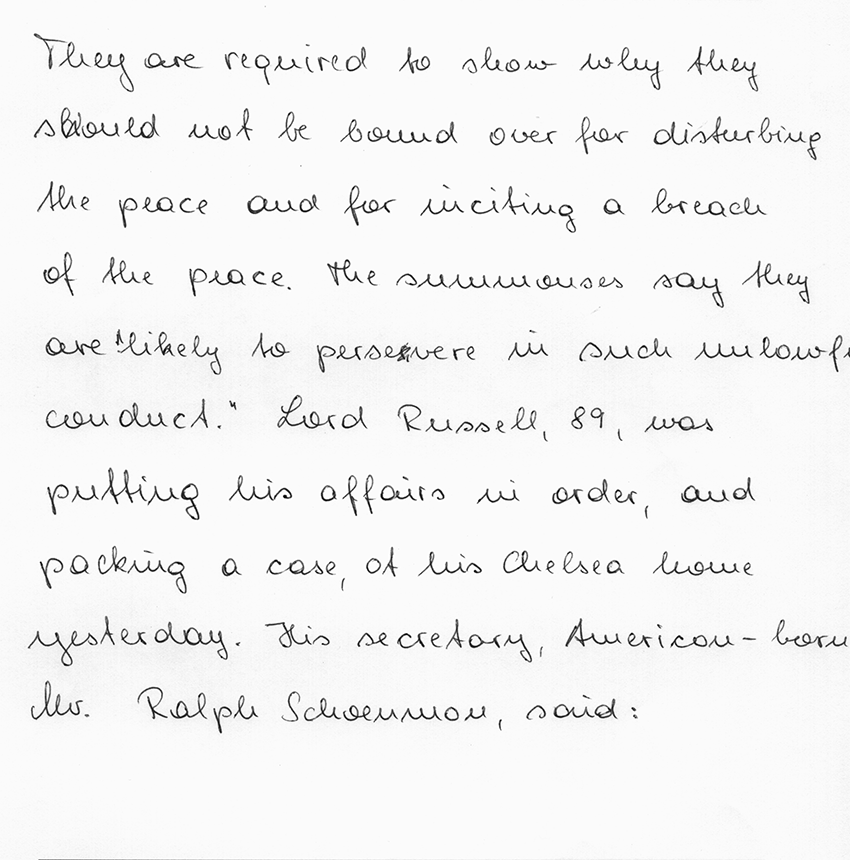 They are required to show why they
should not be bound over for disturbing
the peace and for inciting a breach
of the peace. The summonses say they
are "likely to persevere in such unlawfu
conduct." Lord Russell, 89, was
putting his affairs in order, and
packing a case, at his Chelsea home
yesterday. His secretary, American-born
Mr. Ralph Schoenman, said: